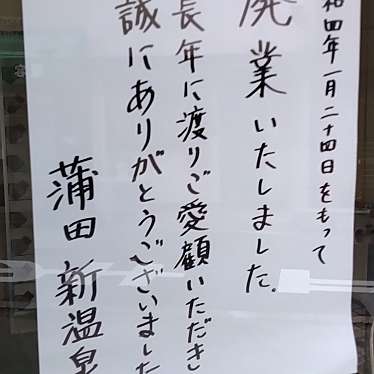 和四年一月二十四日をもって
廃業いたしました。
長年に渡りご愛顧いただき
誠にありがとうございました
蒲田新温泉